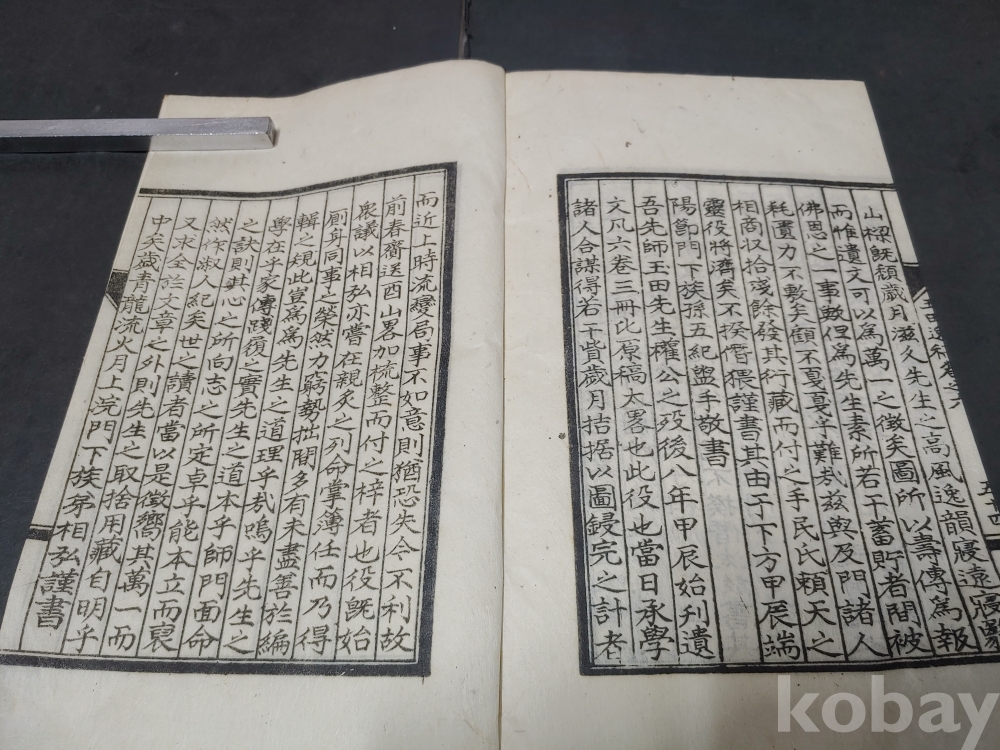 山樑旣頹歲月滋久先生之高風逸韻寢遠寢
而惟遺文可以爲萬一之徵矣圖所以壽傳爲報
佛恩之一事數俚爲先生素所若干蓄貯者間被
耗蠹力不敷矣顧不戞戞乎難哉玆與及門諸人
相商収拾殘餘發其行藏而付之手民氏賴天之
靈役將濟矣不揆僭猥謹書其由于下方甲辰端
陽節門下族孫五紀盥手敬書
吾先師玉田先生權公之歿後八年甲辰始刊遺
文凡六卷三冊比原稿太畧也此役也當日承學
諸人合謀得若干貲歲月拮据以圖鋟完之計者
而近上時流變局事不如意則猶恐失今不利故
前春齎送酉山畧加梳整而付之梓者也役旣始
衆議以相弘亦嘗在親炙之列命掌薄任而乃得
廁身同事之榮然力窮勢拙間多有未盡善於編
輯之規此豈爲爲先生之道理乎哉嗚乎先生之
學在乎家傳踐嶺之實先生之道本乎師門面命
之訣則其心之所向志之所定卓乎能本立而裒
然作淑人紀矣世之讀者當以是徵嚮其萬一而
又求全於文章之外則先生之取捨用藏自明乎
中矣歲靑龍流火月上浣門下族弟相弘謹書
kobay